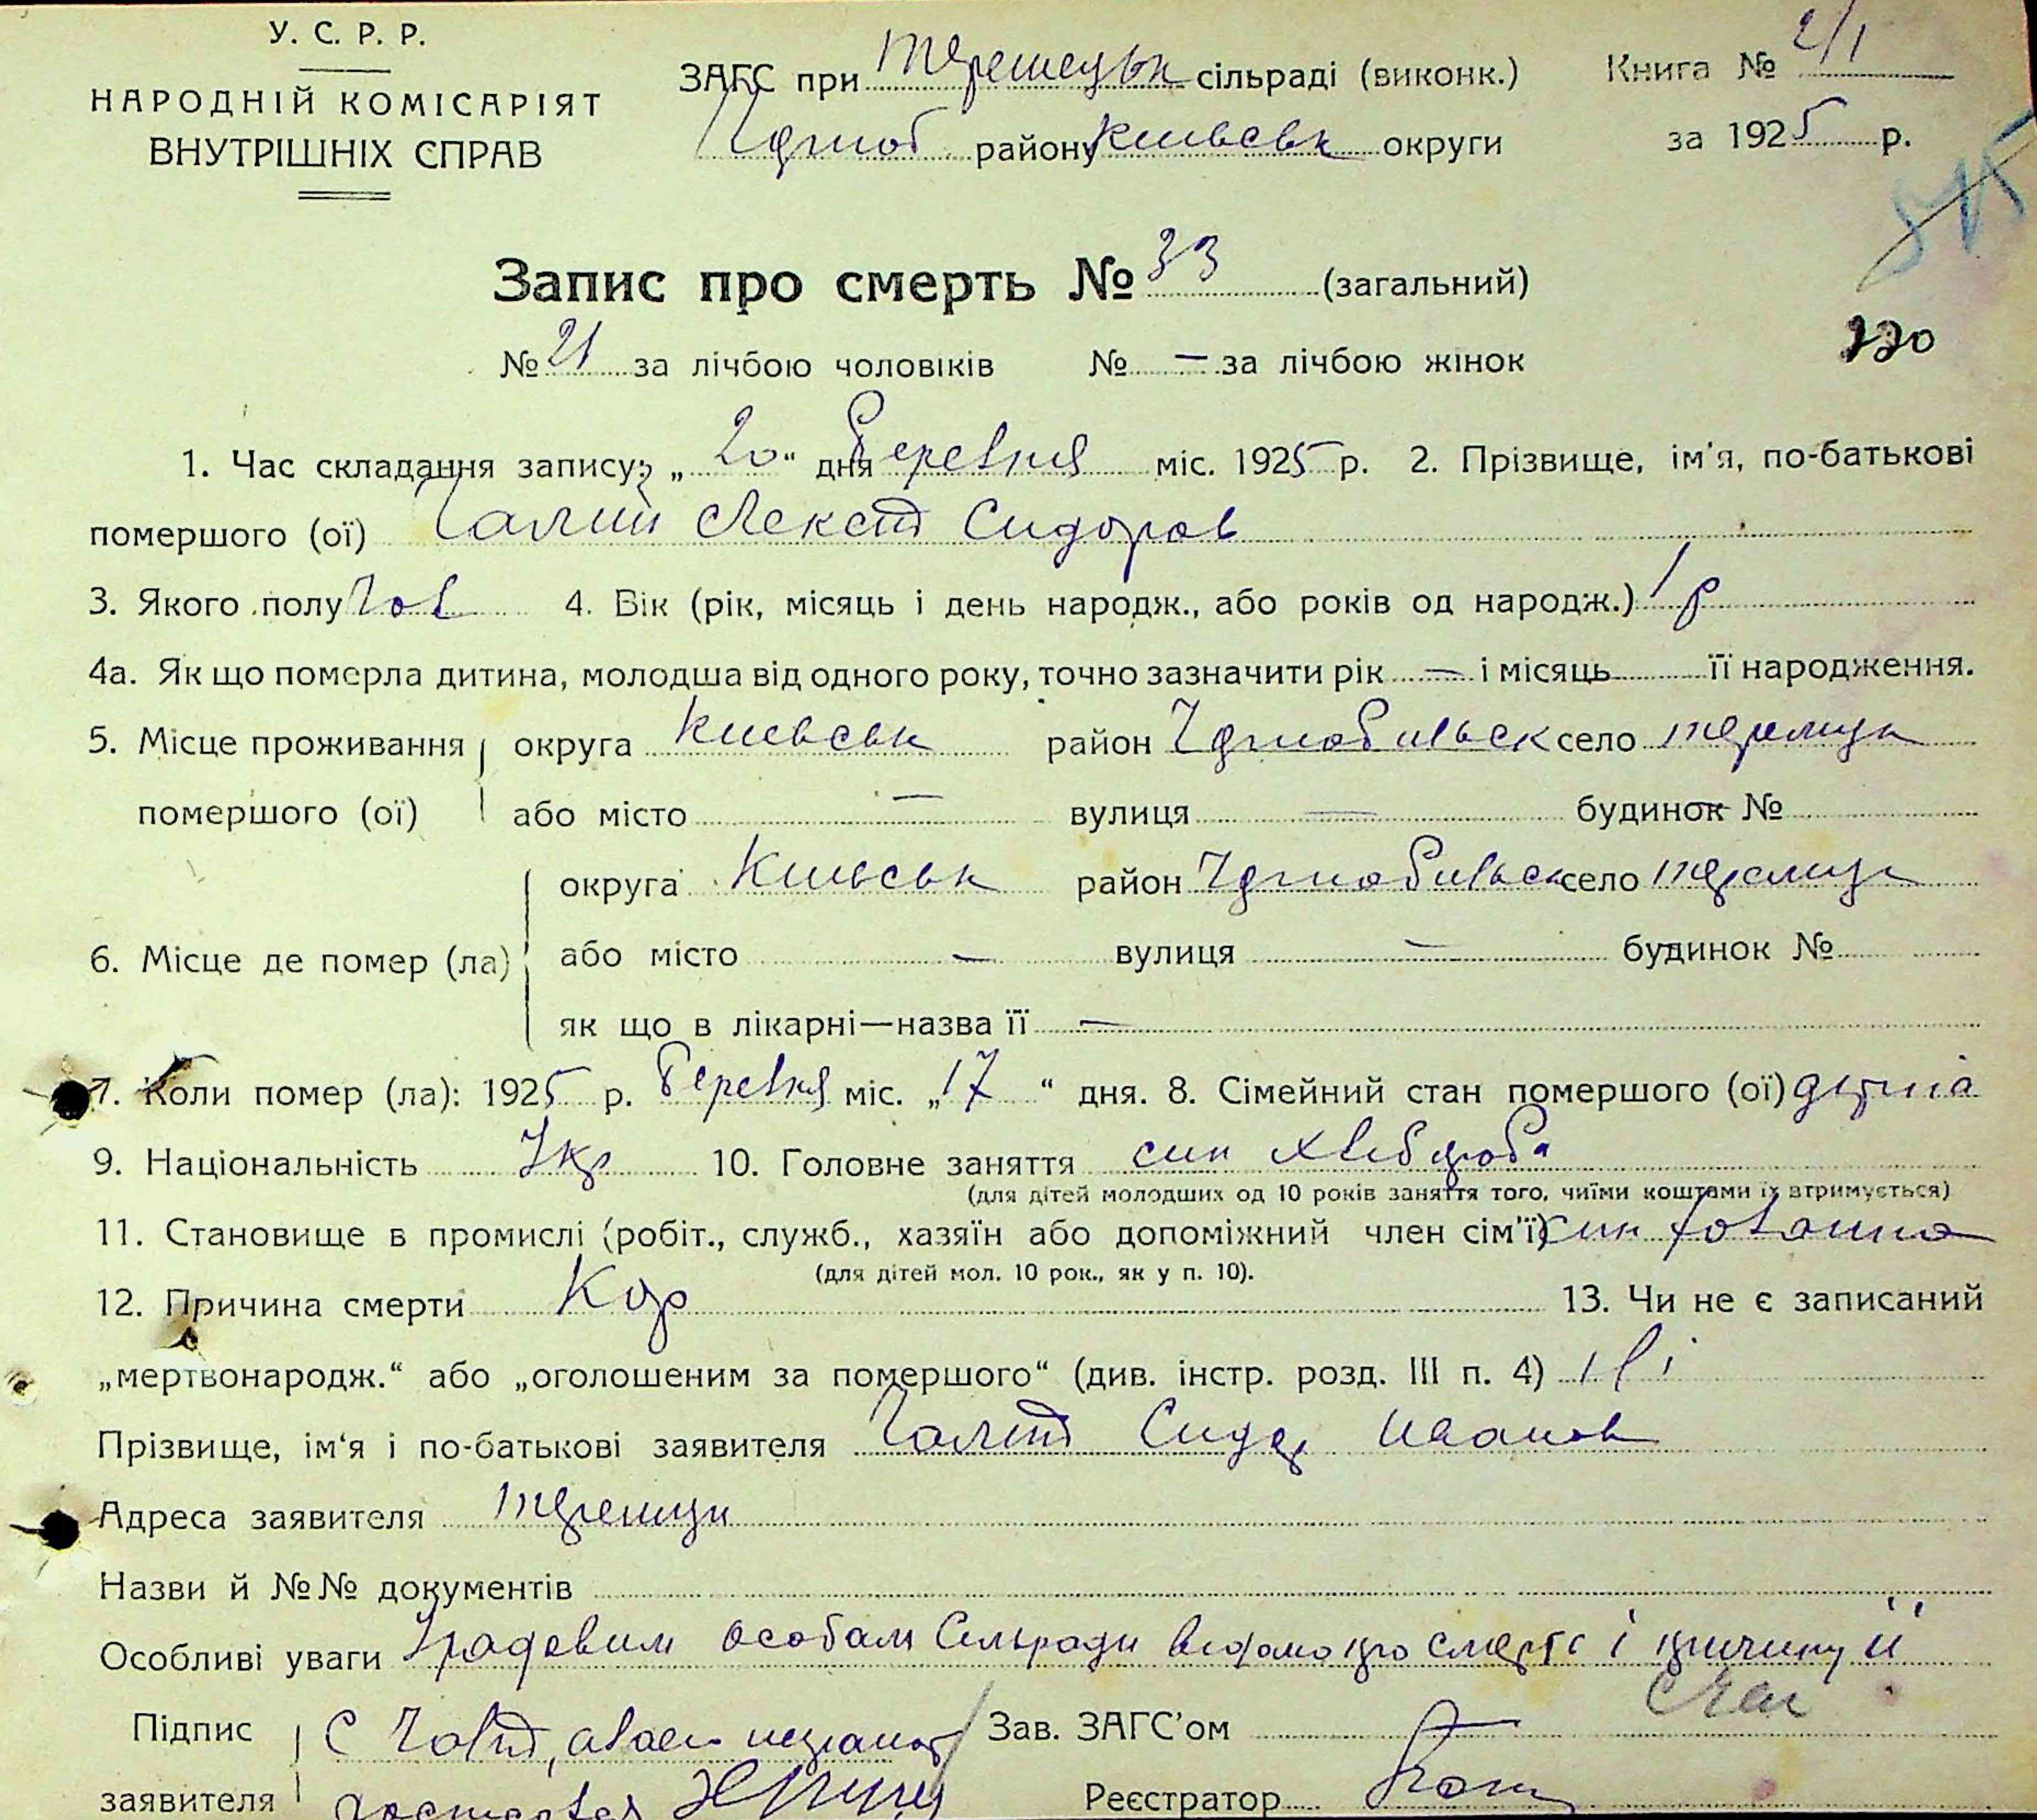 У. С. Р. Р.
НАРОДНІЙ КОМІСАРІЯТ
ВНУТРІШНІХ СПРАВ
ЗАГС при сільраді (виконк.)
Чорноб району Київськ округи
Книга № 2/1
за 1925 р.
Запис про смерть № 33 (загальний)
№ 21 за лічбою чоловіків № — за лічбою жінок
220
1. Час складання запису: „20“ дня березня міс. 1925 р. 2. Прізвище, ім'я, по-батькові
помершого (ої) Сидоров
3. Якого полу чол 4. Вік (рік, місяць і день народж., або років од народж.) 1 р
4а. Як що померла дитина, молодша від одного року, точно зазначити рік — і місяць її народження.
5. Місце проживання помершого (ої) округа Київськ район Чорнобильськ село
або місто — вулиця — будинок №
6. Місце де помер (ла) округа Київськ район Чорнобильськ село
або місто — вулиця — будинок №
як що в лікарні—назва її —
7. Коли помер (ла): 1925 р. березня міс. „17“ дня. 8. Сімейний стан помершого (ої)
9. Національність Укр 10. Головне заняття син хлібороба
(для дітей молодших од 10 років заняття того, чиїми коштами їх втримується)
11. Становище в промислі (робіт., служб., хазяїн або допоміжний член сім'ї) син
(для дітей мол. 10 рок., як у п. 10).
12. Причина смерти Кор 13. Чи не є записаний
„мертвонародж.“ або „оголошеним за помершого“ (див. інстр. розд. III п. 4) Ні
Прізвище, ім'я і по-батькові заявителя Сидор Иванов
Адреса заявителя
Назви й №№ документів
Особливі уваги Урадовим особам Сельради відомо про смерть і причину її
Підпис заявителя Зав. ЗАГС'ом
Реєстратор